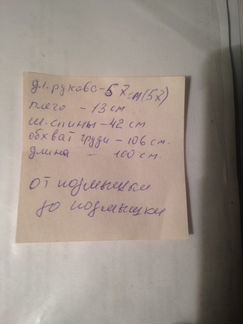 дл. рукова - 57 см (57)
плечо - 13 см
ш. спины - 42 см
обхват груди - 106 см.
длина - 100 см.
от подмышки
до подмышки